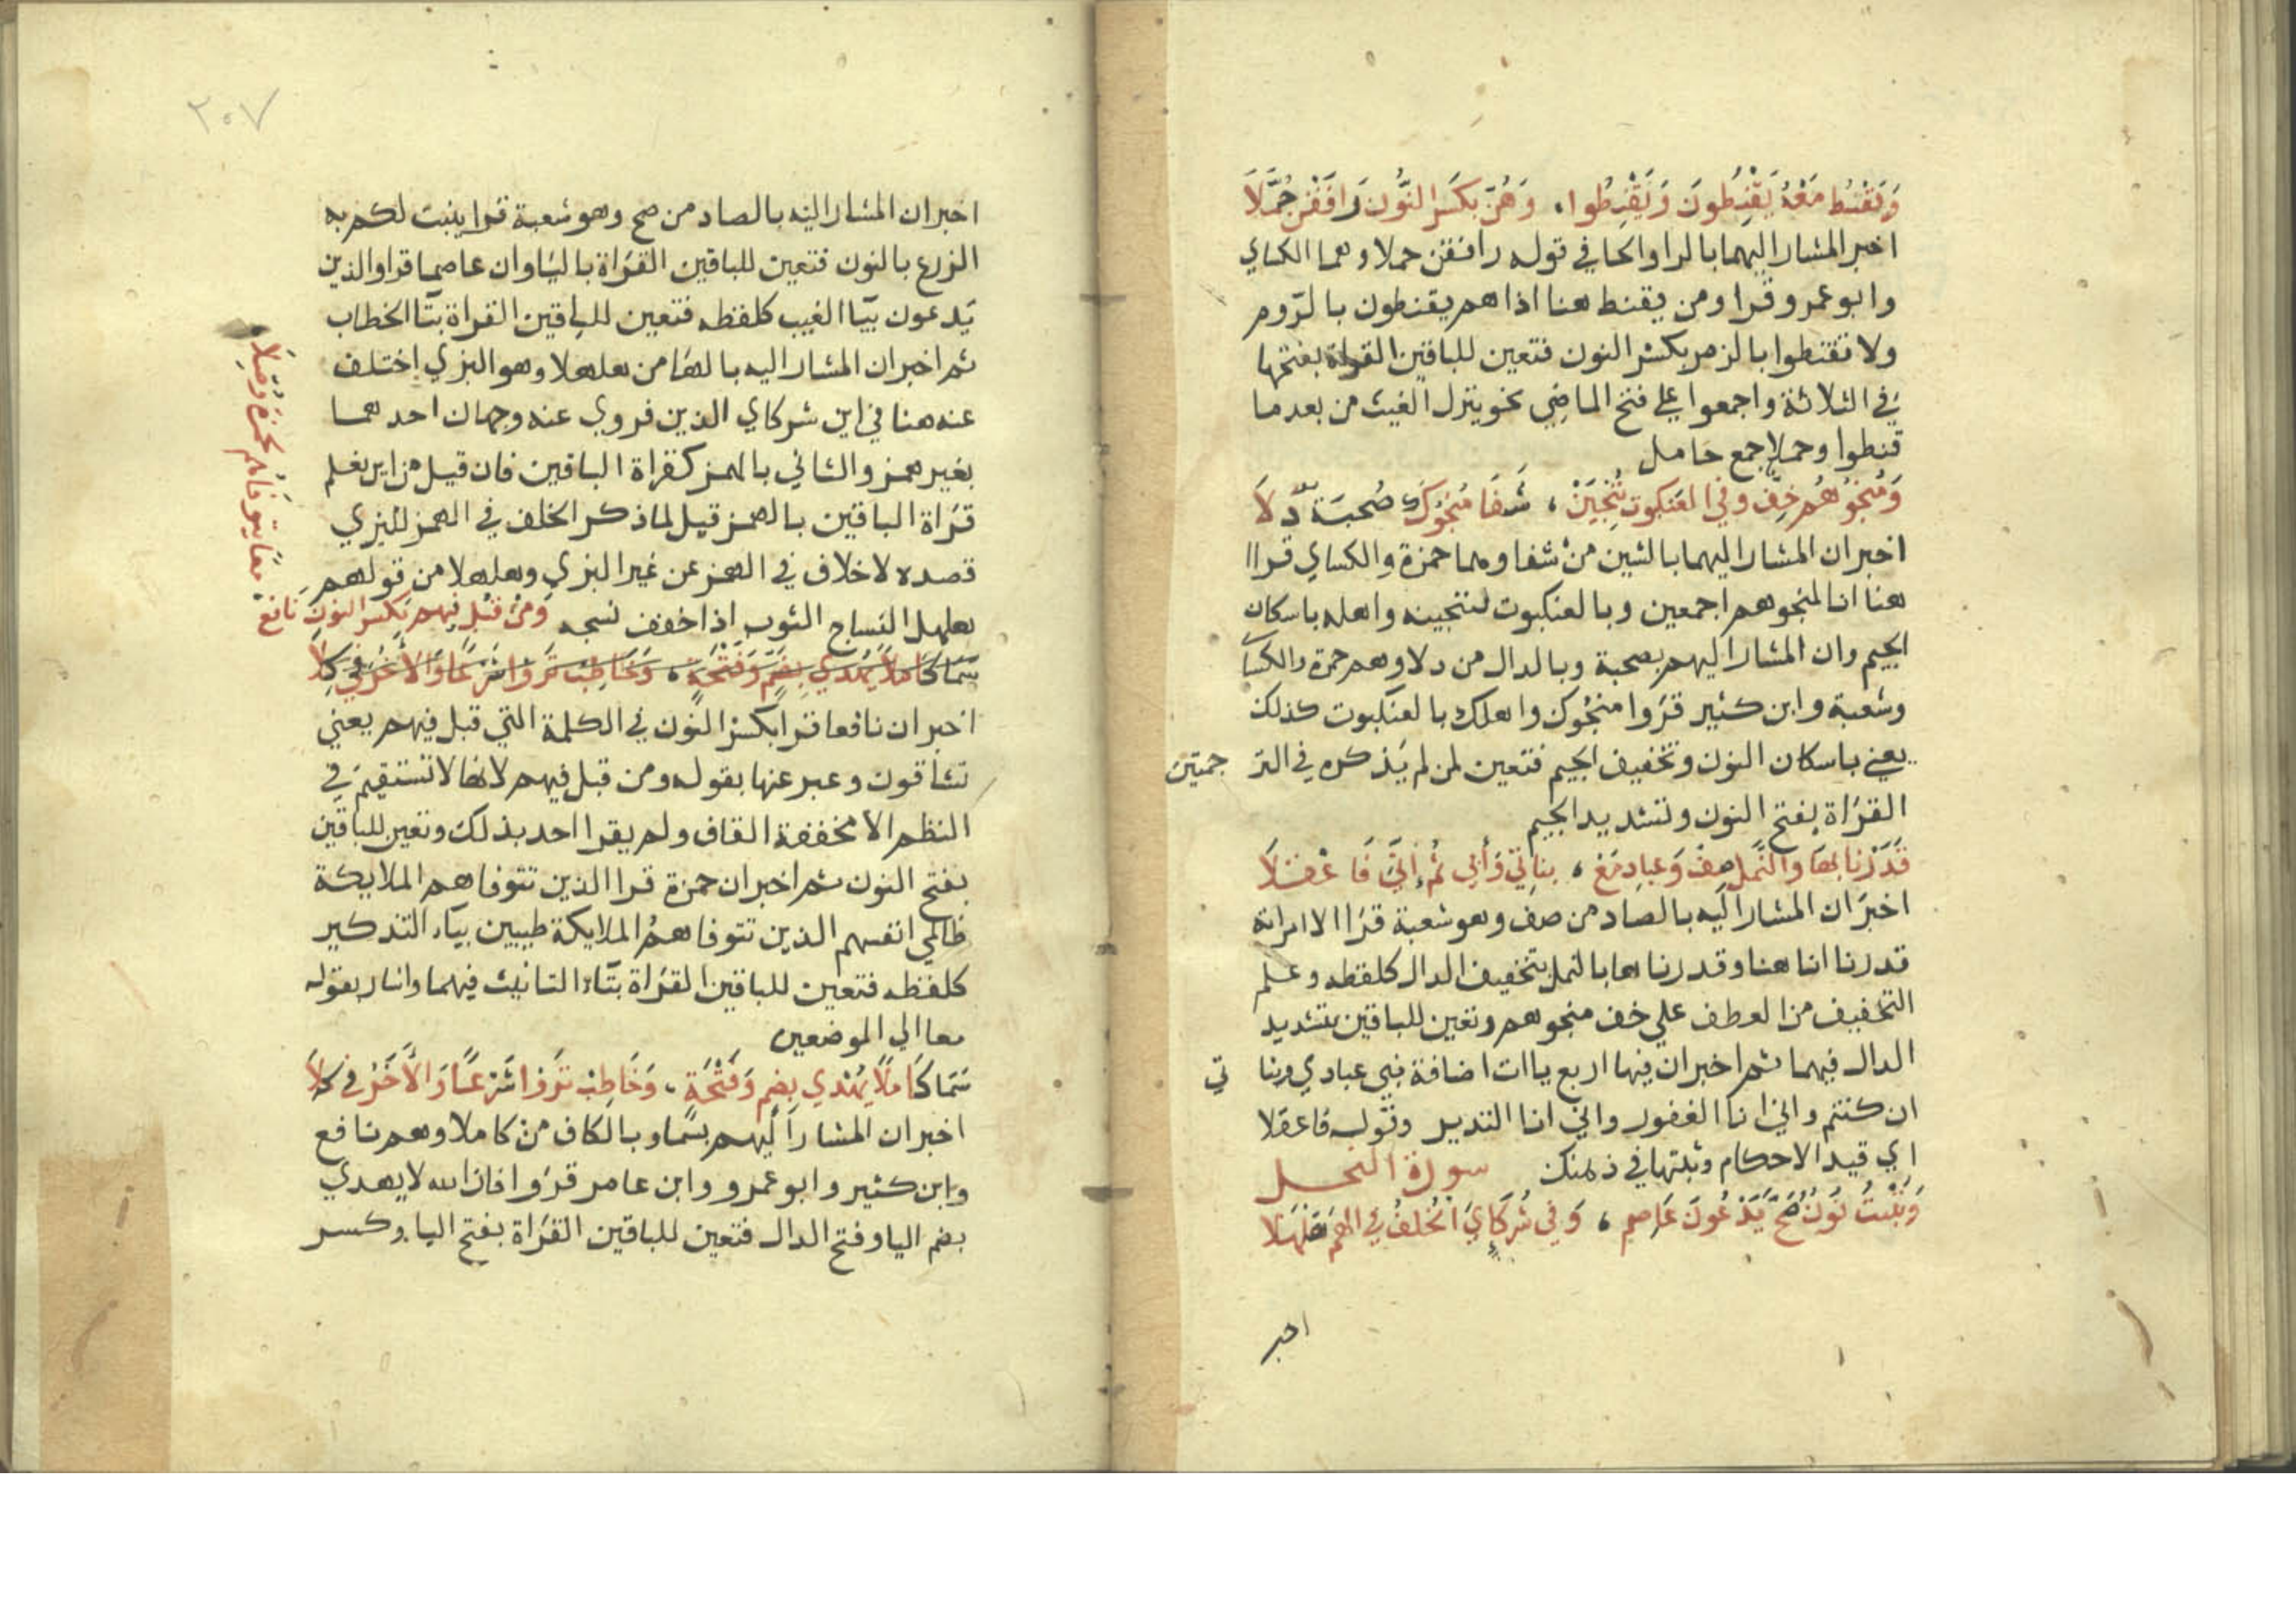 وَيَقْنَطُ مَعْهُ يَقْنِطُونَ وَتَقْنِطُوا، وَهُنَّ بِكَسْرِ النُّونِ رَافَقْنَ حُمَّلَا
اخبر المشار اليهما بالرا والحا في قوله رافقن حملا وهما الكساي
وابو عمرو قرا ومن يقنط هنا اذا هم يقنطون بالروم
ولا تقنطوا بالزمر بكسر النون فتعين للباقين القراة بفتحها
في الثلاثة واجمعوا علي فتح الماضي نحو ينزل الغيث من بعد ما
قنطوا وحملا جمع حامل
وَمُنْجُوهُمُ خِفٌّ وفي العنكبوت نُنْجِيَنَّ، شَفَا مُنْجُوكَ صُحْبَتُهُ دَلَا
اخبر ان المشار اليهما بالشين من شفا وهما حمزة والكساي قراا
هنا انا لمنجوهم اجمعين وبالعنكبوت لننجينه واهله باسكان
الجيم وان المشار اليهم بصحبة وبالدال من دلا وهم حمزة والكسا
وشعبة وابن كثير قروا منجوك واهلك بالعنكبوت كذلك
يعني باسكان النون وتخفيف الجيم فتعين لمن لم يذكره في التر جمتين
القراة بفتح النون وتشديد الجيم
قَدَرْنَا بِهَا والنَّمْلِ صِف وَعبادِ مَعْ، بناتِي وَأَنِّي ثُمَّ إنِّي فَاعْقِلَا
اخبر ان المشار اليه بالصاد من صف وهو شعبة قرا الا امراته
قدرنا انا هنا وقدرناها بالنمل بتخفيف الدال كلفظه وعلم
التخفيف من العطف علي خف منجوهم وتعين للباقين بتشديد
الدال فيهما ثم اخبر ان فيها اربع ياات اضافة نبي عبادي وبنا تي
ان كنتم واني انا الغفور واني انا النذير وقوله فاعقلا
اي قيد الاحكام وثبتها في ذهنك سورة النحل
وَيُنْبِتُ نُونٌ صَحَّ يَدْعُونَ عَاصِم، وَفِي شُرَكَايَ الخُلْفُ فِي الهَمْزِ هَلْهَلَا
اخبر
٢٠٧
اخبر ان المشار اليه بالصاد من صح وهو شعبة قرا ينبت لكم به
الزرع بالنون فتعين للباقين القراة بالياوان عاصما قرا والذين
يدعون بيا الغيب كلفظه فتعين للباقين القراة بتا الخطاب
ثم اخبر ان المشار اليه بالها من هلهلا وهو البزي اختلف
عنه هنا في اين شركاي الذين فروي عنه وجهان احدهما
بغير همز والثاني بالهمز كقراة الباقين فان قيل من اين نعلم
قراة الباقين بالهمز قيل لما ذكر الخلف في الهمز للبزي
قصده لا خلاف في الهمز عن غير البزي وهلهلا من قولهم
هلهل النساج الثوب اذا خفف نسجه وَمِنْ قَبْلِ فِيهِم بِكَسْرِ النُّونِ نَافِعٌ
معًا يتوفاهم لحمزة وصّلا
سَمَا كَامِلًا يَهْدِي بِضَمٍّ وَفَتْحَةٍ، وَخَاطِبْ تَرَوْا شَرْعًا وَالآخَرُ فِي كِلَا
اخبر ان نافعا قرا بكسر النون في الكلمة التي قبل فيهم يعني
تشاقون وعبر عنها بقوله ومن قبل فيهم لانها لا تستقيم في
النظم الا مخففة القاف ولم يقرا احد بذلك وتعين للباقين
بفتح النون ثم اخبر ان حمزة قرا الذين تتوفاهم الملايكة
ظالمي انفسهم الذين تتوفاهم الملايكة طيبين بياء التذكير
كلفظه فتعين للباقين القراة بتاء التانيث فيهما واشار بقوله
معا الي الموضعين
سَمَا كَامِلًا يَهْدِي بِضَمٍّ وَفَتْحَةٍ، وَخَاطِبْ تَرَوْا شَرْعًا وَالآخَرُ فِي كِلَا
اخبر ان المشار اليهم بسما وبالكاف من كاملا وهم نافع
وابن كثير وابو عمرو وابن عامر قروا فان الله لا يهدي
بضم اليا وفتح الدال فتعين للباقين القراة بفتح اليا وكسر